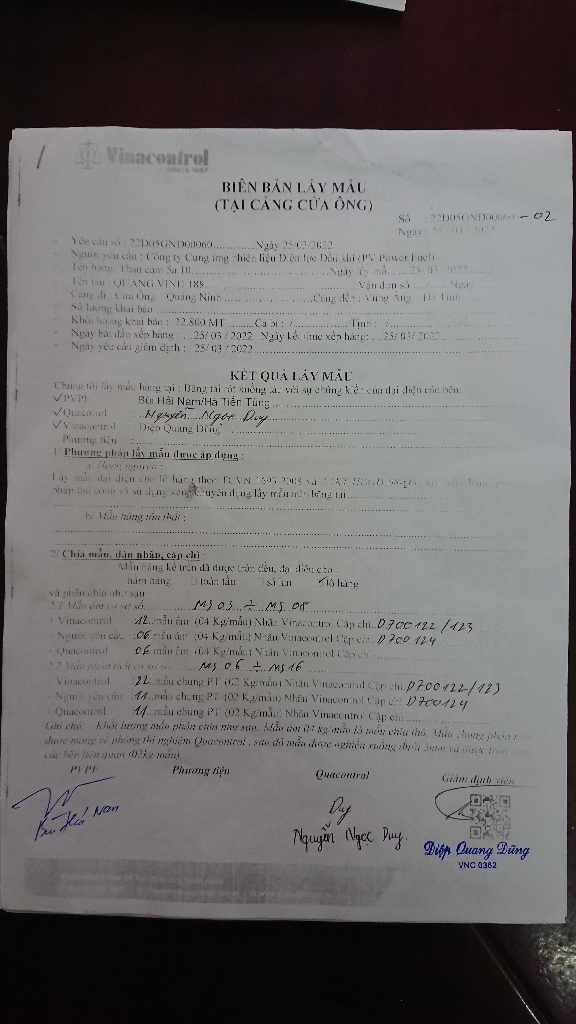 Vinacontrol
SINCE 1957
BIÊN BẢN LẤY MẪU
(TẠI CẢNG CỬA ÔNG)
Số : 22D05GND00060 - 02
Ngày
Yêu cầu số : 22D05GND00060 Ngày 25/03/2022
Người yêu cầu : Công ty Cung ứng nhiên liệu Điện lực Dầu khí (PV Power Fuel)
Tên hàng: Than cám 5a 10 Ngày lấy mẫu 25/03/2022
Tên tàu : QUANG VINH 188 Vận đơn số Ngày
Cảng đi : Cửa Ông Quảng Ninh Cảng đến : Vũng Áng Hà Tĩnh
Số lượng khai báo
Khối lượng khai báo : 22.800 MT Ca bi : / Tịnh : /
Ngày bắt đầu xếp hàng 25/03/2022 Ngày kết thúc xếp hàng: 25/03/2022
Ngày yêu cầu giám định : 25/03/2022
KẾT QUẢ LẤY MẪU
Chúng tôi lấy mẫu hàng tại : Băng tải rót xuống tàu với sự chứng kiến của đại diện các bên:
✓PVPF Bùi Hải Nam/Hà Tiến Tùng
✓Quacontrol : Nguyễn Ngọc Duy
✓Vinacontrol Diệp Quang Dũng
Phương tiện :
1/ Phương pháp lấy mẫu được áp dụng :
a/ Hàng nguyên :
Lấy mẫu đại diện cho lô hàng theo TCVN 1693:2008 và
pháp thủ công và sử dụng xẻng chuyên dụng lấy mẫu trên băng tải
b/ Mẫu hàng tổn thất :
2/ Chia mẫu, dán nhãn, cặp chì :
Mẫu hàng kể trên đã được trộn đều, đại diện cho :
hầm hàng □ toàn tàu □ sà lan ✓ lô hàng
và phân chia như sau :
2.1 Mẫu ẩm cơ sở số: MS 03 ÷ MS 08
- Vinacontrol 12 mẫu ẩm (04 Kg/mẫu) Nhãn Vinacontrol Cặp chì D700122/123
- Người yêu cầu 06 mẫu ẩm (04 Kg/mẫu) Nhãn Vinacontrol Cặp chì D700124
- Quacontrol 06 mẫu ẩm (04 Kg/mẫu) Nhãn Vinacontrol Cặp chì
2.2 Mẫu phân tích cơ sở số MS 06 ÷ MS 16
- Vinacontrol 22 mẫu chung PT (02 Kg/mẫu) Nhãn Vinacontrol Cặp chì D700122/123
- Người yêu cầu 11 mẫu chung PT (02 Kg/mẫu) Nhãn Vinacontrol Cặp chì D700124
- Quacontrol 11 mẫu chung PT (02 Kg/mẫu) Nhãn Vinacontrol Cặp chì
Ghi chú: Khối lượng mẫu phân chia như sau. Mẫu ẩm 04 kg/mẫu là mẫu chia thô. Mẫu chung phân tích
được mang về phòng thí nghiệm Quacontrol , sau đó mẫu được nghiền xuống dưới 3mm và được
các bên liên quan (02kg/mẫu).
PVPF Phương tiện Quacontrol Giám định viên
Bùi Hải Nam
Duy
Nguyễn Ngọc Duy.
Diệp Quang Dũng
VNC 0362